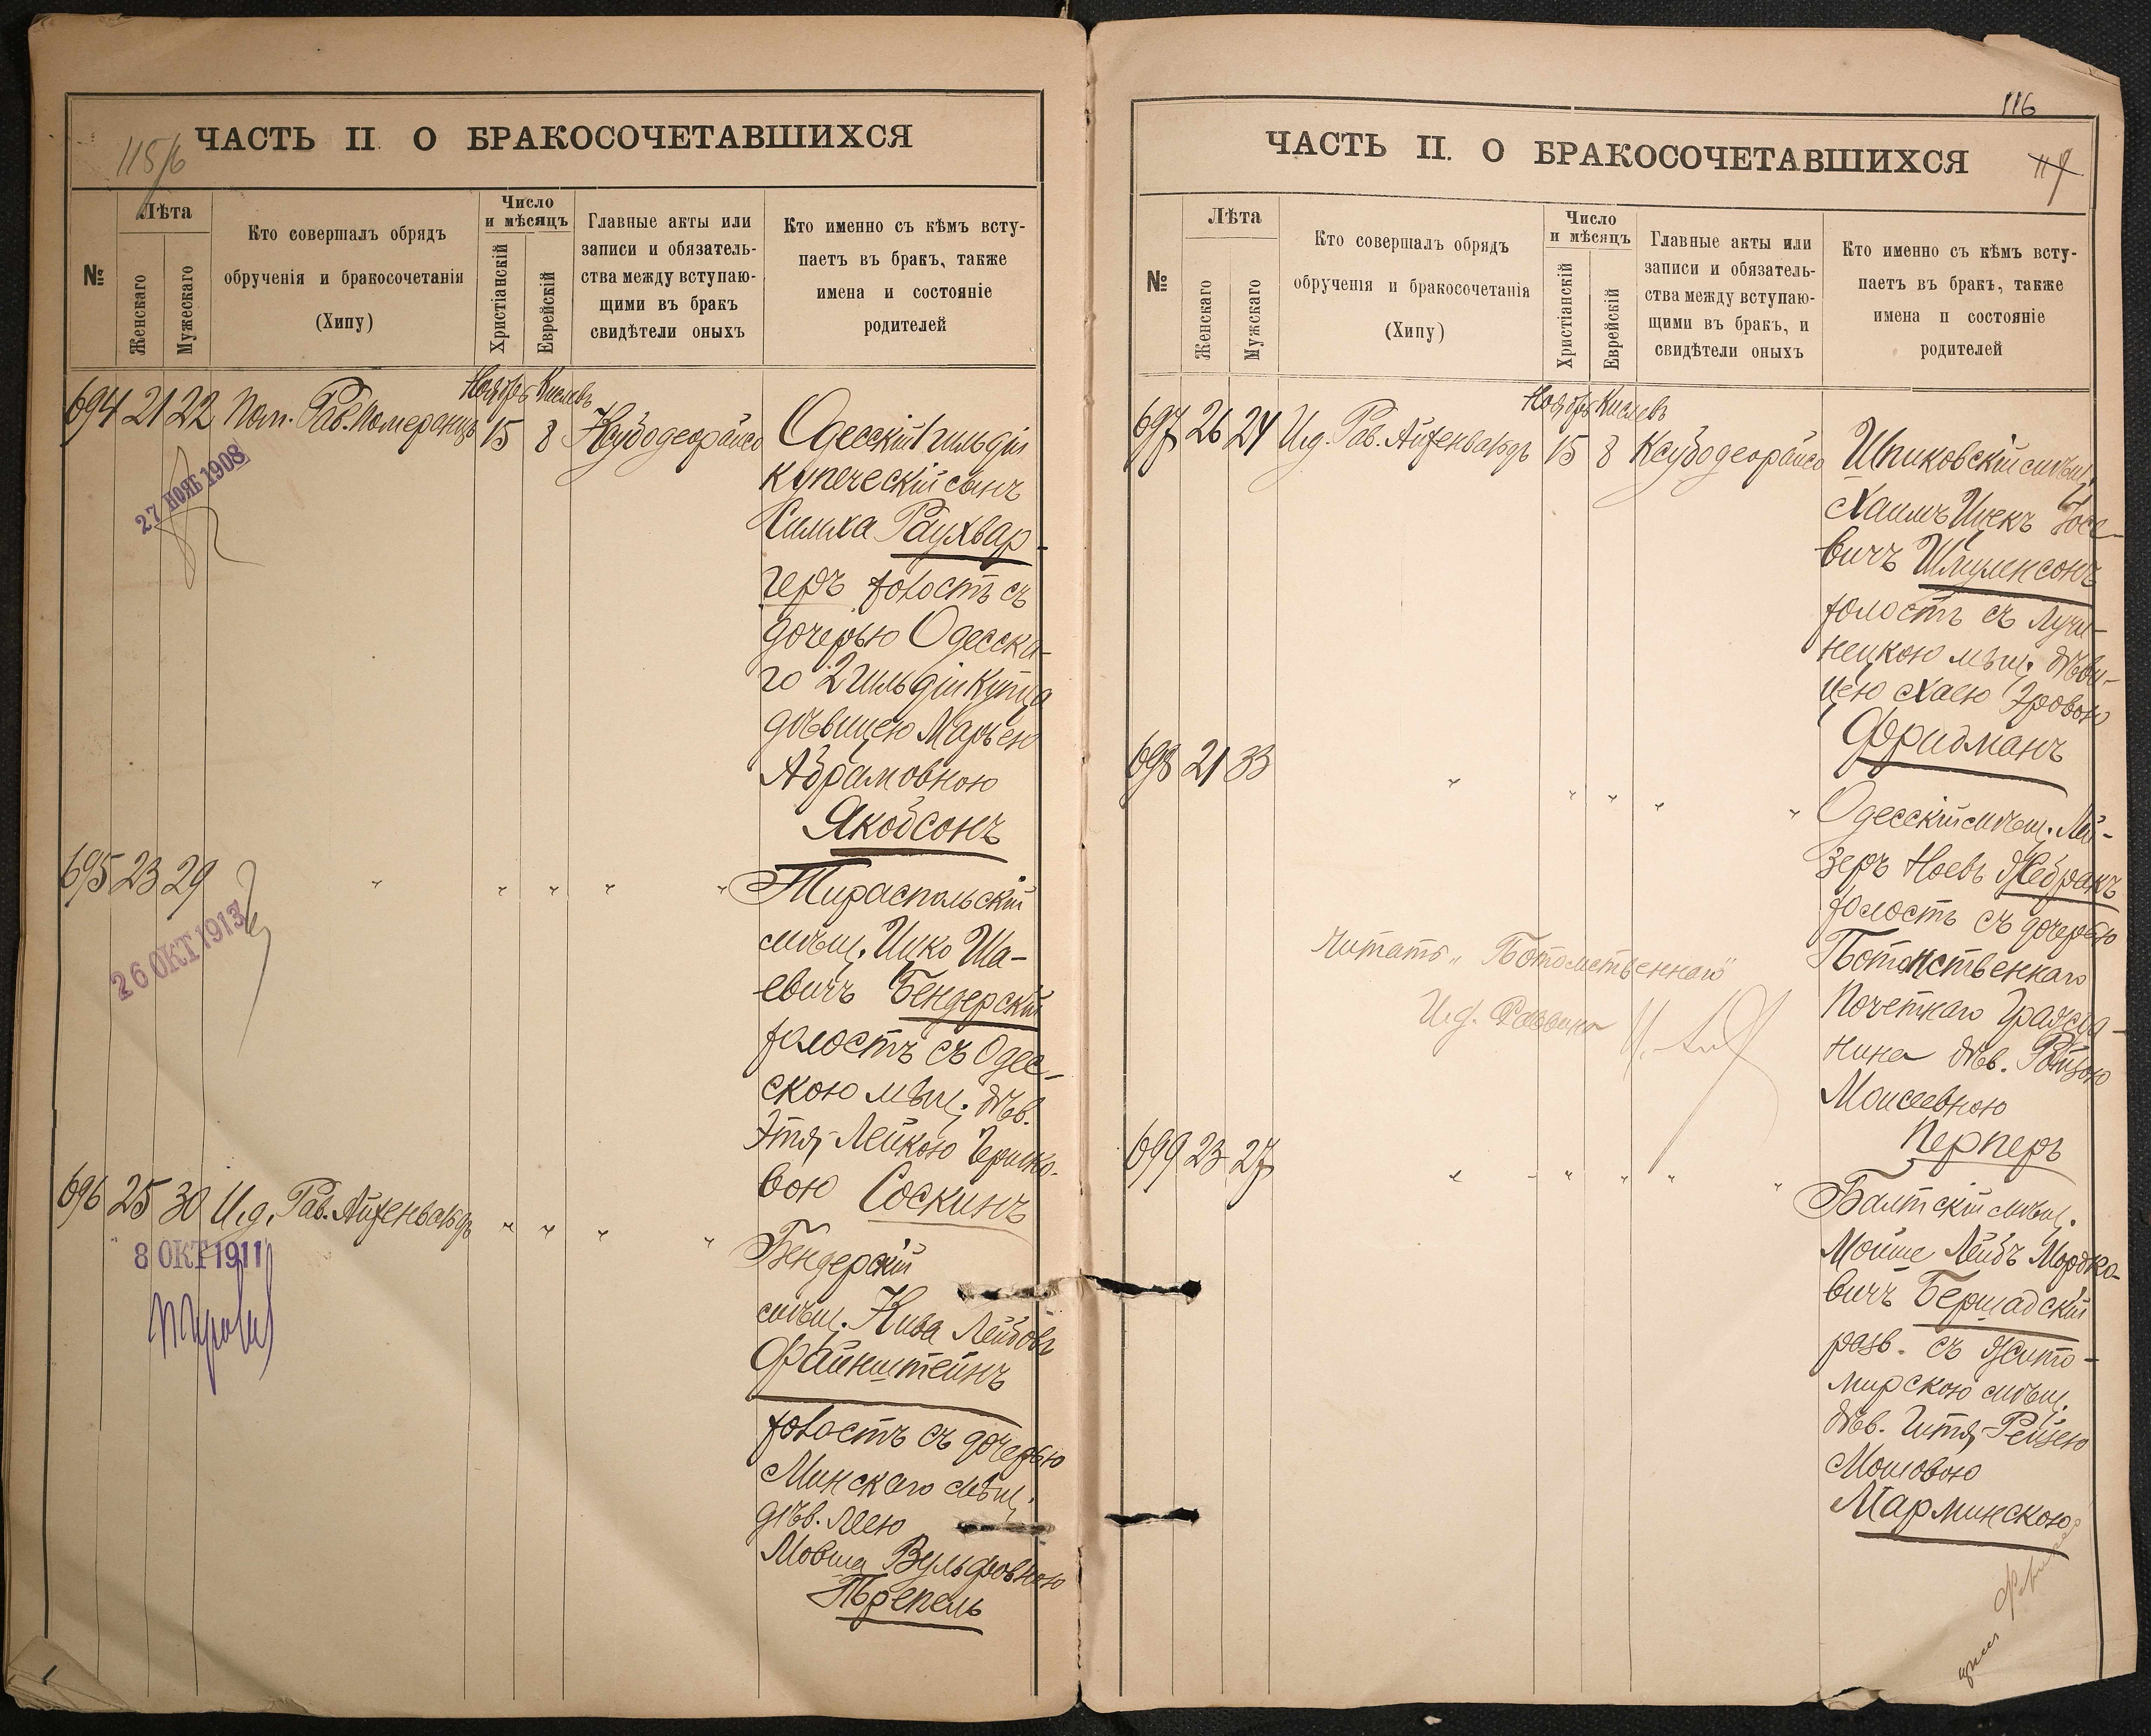 115/6
ЧАСТЬ II О БРАКОСОЧЕТАВШИХСЯ
№
Лѣта
Женскаго
Мужескаго
Кто совершалъ обрядъ
обрученія и бракосочетанія
(Хипу)
Число
и мѣсяцъ
Христіанскій
Еврейскій
Главные акты или
записи и обязатель-
ства между вступаю-
щими въ бракъ
свидѣтели оныхъ
Кто именно съ кѣмъ всту-
паетъ въ бракъ, также
имена и состояніе
родителей
Ноябрь Кислевъ
694 21 22 Пом. Рав. Померанцъ 15 8 Ксубодеорайсо
27 НОЯБ 1908
Одесскій 1 гильдіи
купеческій сынъ
Симха Раухвар-
геръ холостъ съ
дочерью Одесска-
го 2 гильдіи купца
дѣвицею Марьею
Абрамовною
Якобсонъ
695 23 29 " " " " "
26 ОКТ 1913
Тираспольскій
мѣщ. Ицко Ша-
евичъ Бендерскій
холостъ съ Одес-
скою мѣщ. дѣв.
Этя-Лейкою Гершко-
вою Соскинъ
696 25 30 И.д. Рав. Айзенвальдъ " " " "
8 ОКТ 1911
Бендерскій
мѣщ. Кива Лейбовъ
Файнштейнъ
холостъ съ дочерью
Минскаго мѣщ.
дѣв. Леею
Мовша Вульфовною
Трепель
116
117
ЧАСТЬ II. О БРАКОСОЧЕТАВШИХСЯ
№
Лѣта
Женскаго
Мужскаго
Кто совершалъ обрядъ
обрученія и бракосочетанія
(Хипу)
Число
и мѣсяцъ
Христіанскій
Еврейскій
Главные акты или
записи и обязатель-
ства между вступаю-
щими въ бракъ, и
свидѣтели оныхъ
Кто именно съ кѣмъ всту-
паетъ въ бракъ, также
имена и состояніе
родителей
Ноябрь Кислевъ
697 26 24 И.д. Рав. Айзенвальдъ 15 8 Ксубодеорайсо
Шпиковскій мѣщ.
Хаимъ Ицекъ Іосе-
вичъ Шмуленсонъ
холостъ съ Лучи-
нецкою мѣщ. дѣви-
цею Хаею Сровою
Фридманъ
698 21 33 " " " " "
Одесскій мѣщ. Лей-
зеръ Ноевъ Жебракъ
холостъ съ дочерью
Потомственнаго
Почетнаго Гражда-
нина дѣв. Розою
Моисеевною
Перперъ
читать „Потомственнаго"
И.д. Раввина
699 23 27 " " " " "
Балтскій мѣщ.
Мойше Лейбъ Мордко-
вичъ Бершадскій
разв. съ Жито-
мирскою мѣщ.
дѣв. Гитя-Рейзею
Мошовою
Марминскою